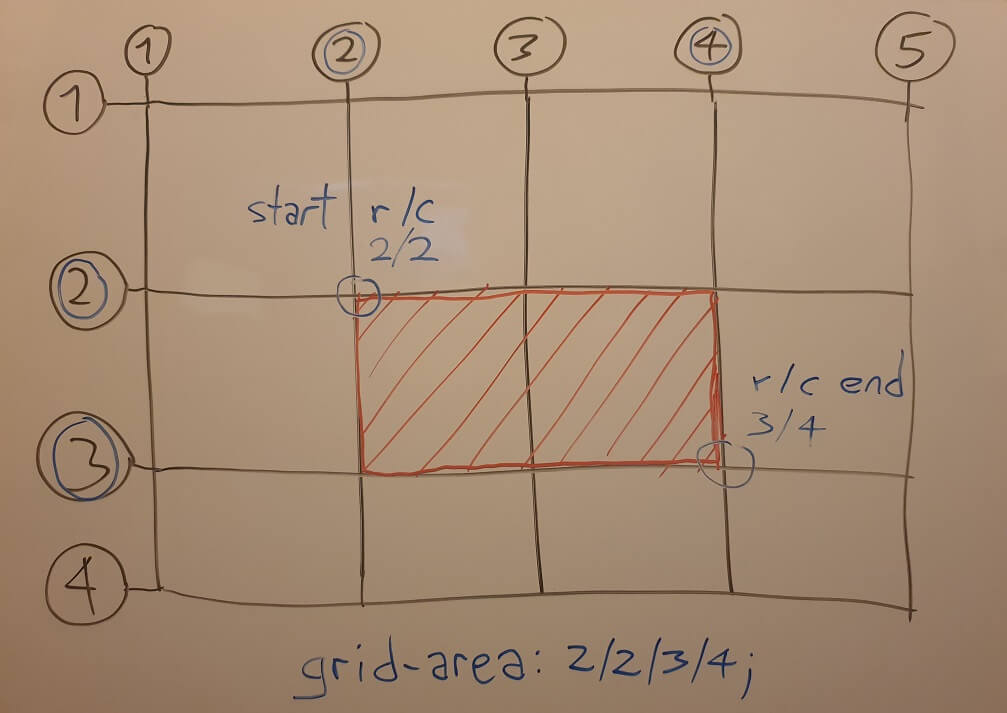 1 2 3 4 5
1
start r/c
2/2
2
r/c end
3/4
3
4
grid-area: 2/2/3/4;